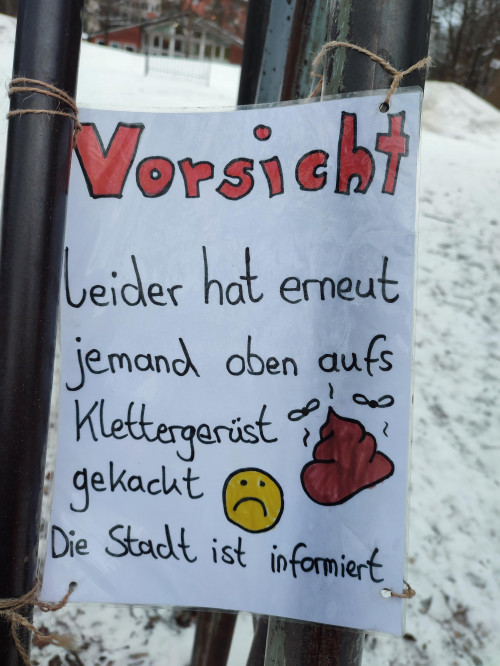 Vorsicht
Leider hat erneut
jemand oben aufs
Klettergerüst
gekackt
Die Stadt ist informiert